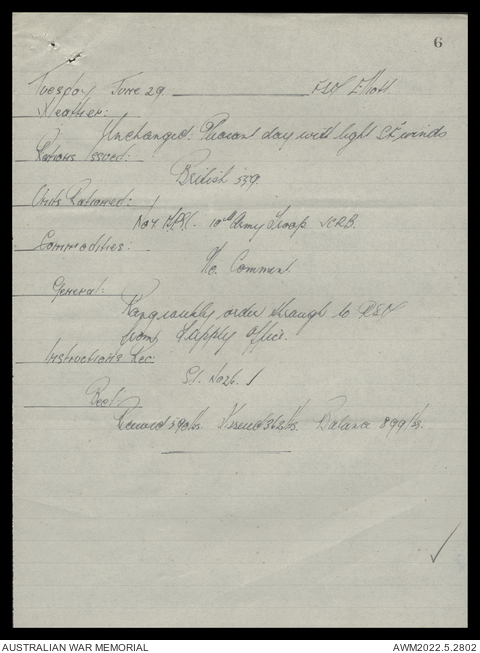 6
Tuesday June 29.
Weather:
Unchanged. Pleasant day with light S.E. winds
Rations Issued:
British 559.
Units Rationed:
No 4 10th Army Troop
Commodities:
No. Comment
General:
order through to
from Supply Office.
Instructions Rec:
S.I. No 26.
Received 590 lbs. Issued 362 lbs. Balance 899 lbs.
AUSTRALIAN WAR MEMORIAL
AWM2022.5.2802